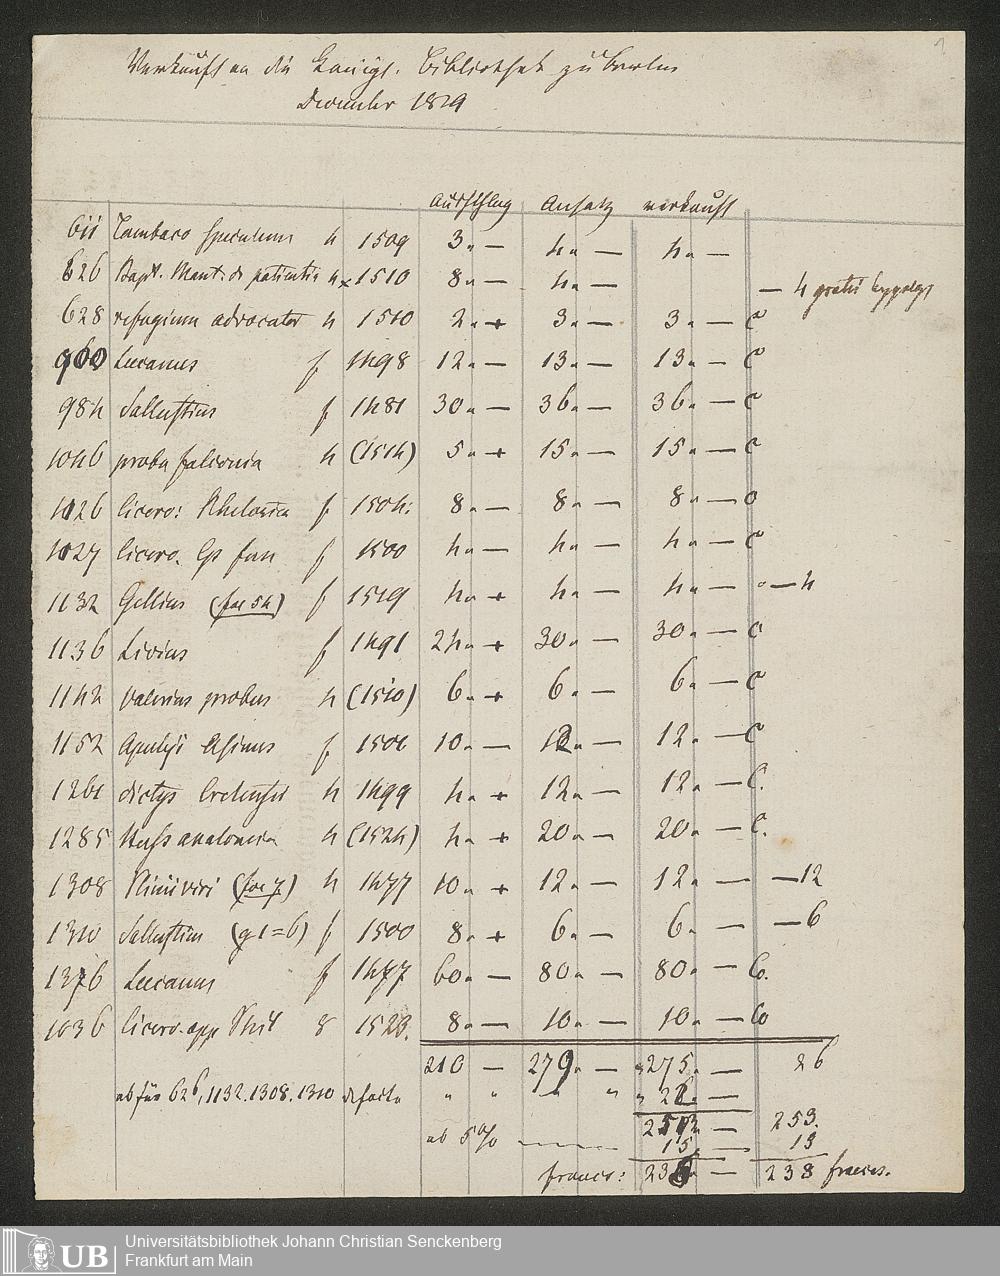 1
Verkauft an die Königl. Bibliothek zu Berlin
December 1829
Ansatz verkauft
611 Tambaco Speculum 4 1509 3 „ — 4 „ — 4 „ —
626 Bapt. Mant. de patientia 4 x 1510 8 „ — 4 „ — — 4 gratis
628 refugium advocator 4 1510 2 „ + 3 „ — 3 „ — c
960 Lucanus f 1498 12 „ — 13 „ — 13 „ — c
984 Sallustius f 1481 30 „ — 36 „ — 36 „ — c
1046 proba falconia 4 (1514) 5 „ + 15 „ — 15 „ — c
1026 Cicero: Rhetorica f 1504: 8 „ — 8 „ — 8 „ — c
1027 Cicero. Ep fam f 1500 4 „ — 4 „ — 4 „ — c
1132 Gellius (fol 54) f 1519 4 „ + 4 „ — 4 „ — — 4
1136 Livius f 1491 24 „ + 30 „ — 30 „ — c
1142 Valerius probus 4 (1510) 6 „ + 6 „ — 6 „ — c
1152 Apuleji Asinus f 1501 10 „ — 12 „ — 12 „ — c
1261 dictys Cretensis 4 1499 4 „ + 12 „ — 12 „ — C.
1285 anatomia 4 (1524) 4 „ + 20 „ — 20 „ — C.
1308 (fol 7) 4 1477 10 „ + 12 „ — 12 „ — — 12
1310 Sallustius (g 1=6) f 1500 8 „ + 6 „ — 6 „ — — 6
1376 Lucanus f 1477 60 „ — 80 „ — 80 „ — Co.
1036 Cicero. opp Phil 8 1523. 8 „ — 10 „ — 10 „ — Co
210 — 279 „ — 275 „ — 26
ab für 626, 1132. 1308. 1310 defecte „ „ „ „ —
— 253.
ab 5% 15 — 15
francs: — 238 francs.
UB
Universitätsbibliothek Johann Christian Senckenberg
Frankfurt am Main